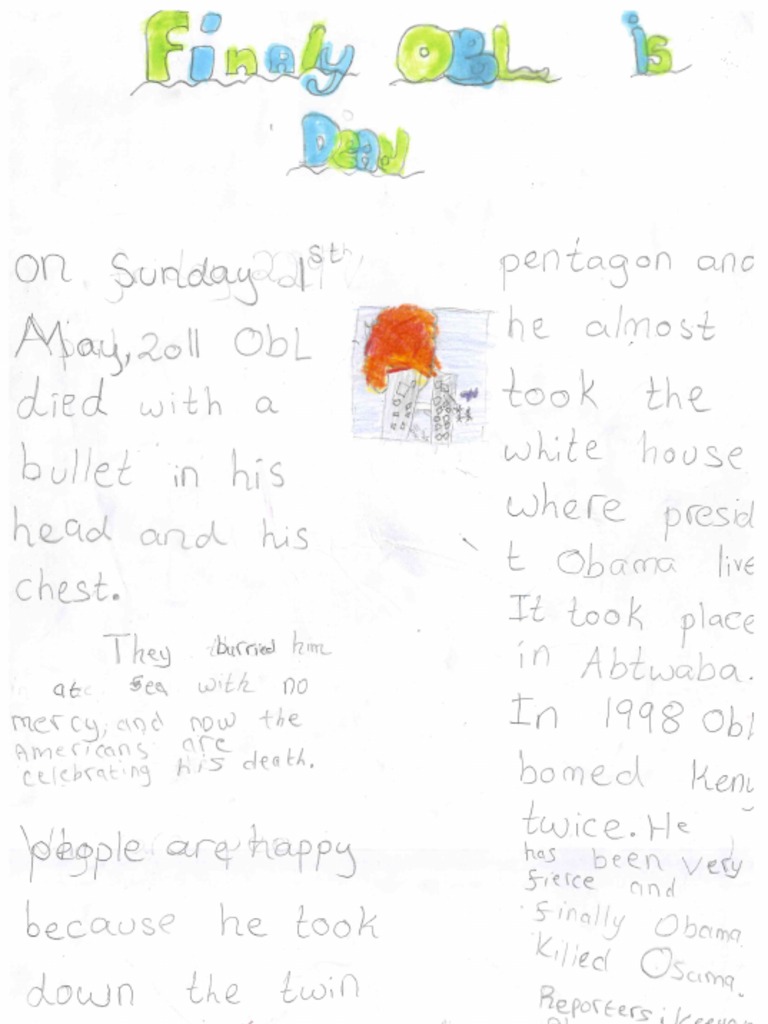 Finaly OBL is
Dead
on Sunday 1st
May, 2011 ObL
died with a
bullet in his
head and his
chest.
They burried him
at sea with no
mercy, and now the
Americans are
celebrating his death.
people are happy
because he took
down the twin
pentagon and
he almost
took the
white house
where presid
t Obama live
It took place
in Abtwaba.
In 1998 Obl
bomed Keny
twice. He
has been very
fierce and
finally Obama
killed Osama.
Reporters: